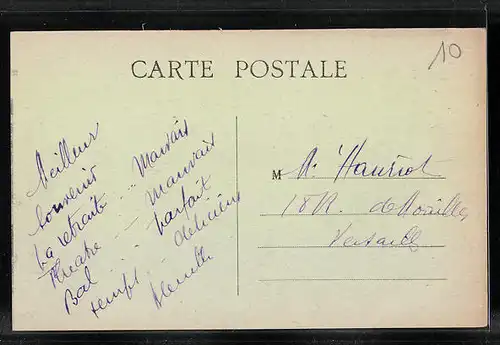 10
CARTE POSTALE
Meilleur
Souvenir
La retraite .. Mauvais
Théatre .. mauvais
Bal .. parfait
temps .. délicieux
M
18 R. de Noailles
Versailles